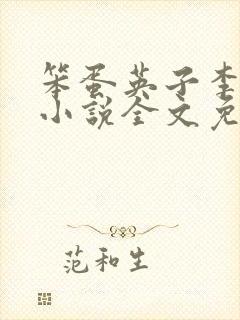 笨蛋英子李
小说全文免
范和生